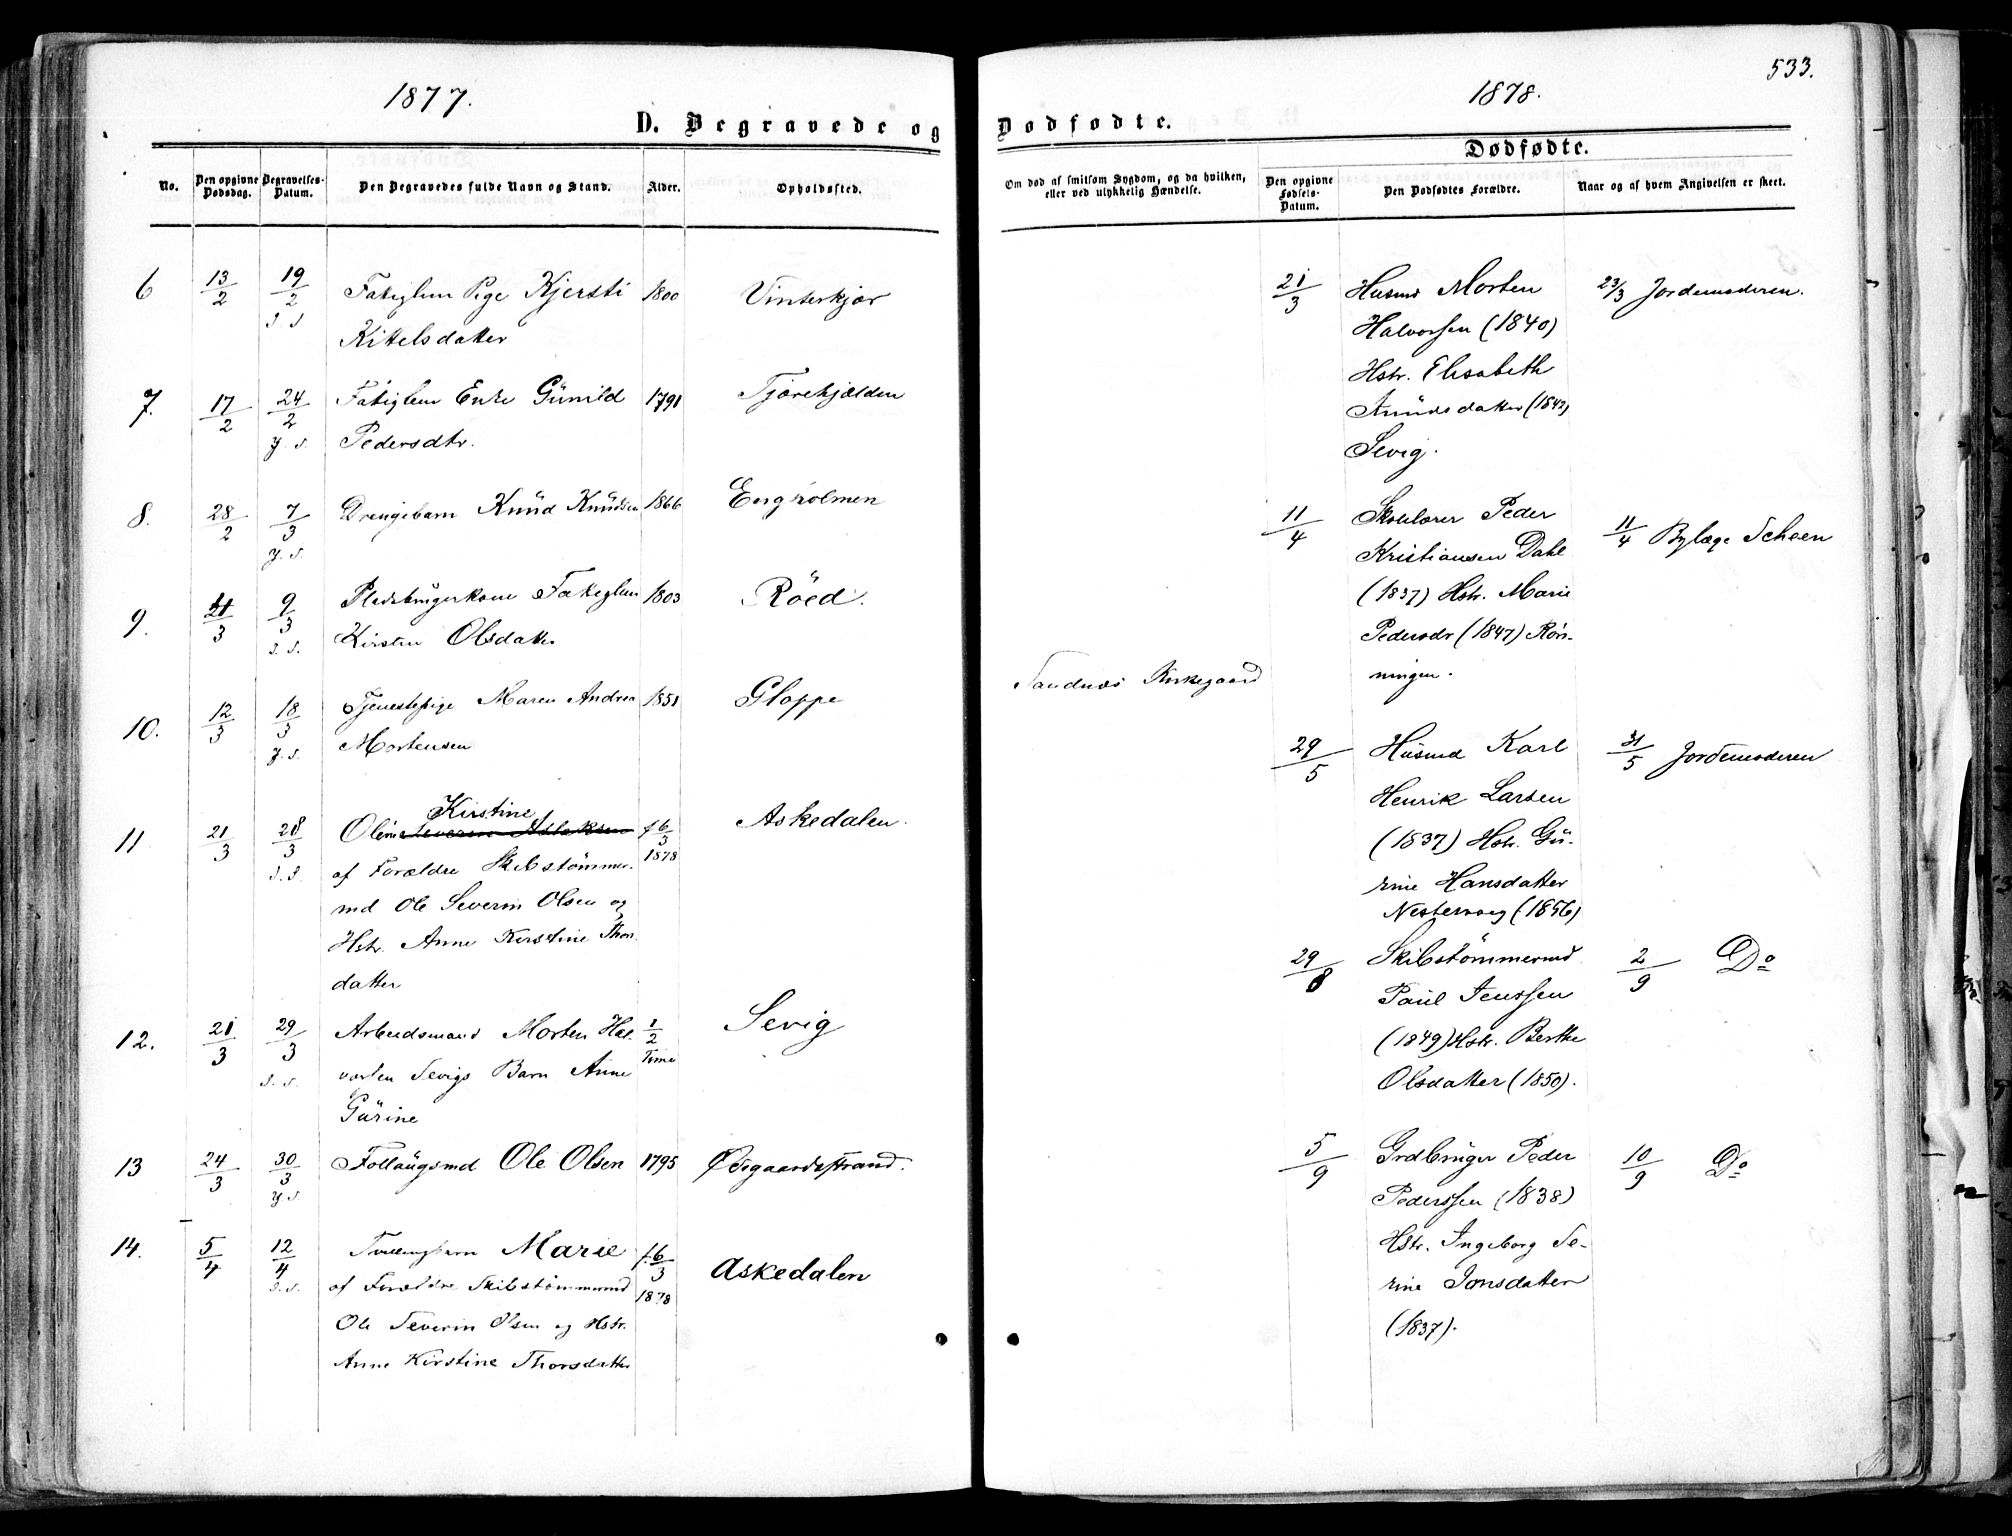 1877.
1878.
533.
D. Begravede og Dødfødte.
Dødfødte.
No.
Den opgivne Dødsdag.
Begravelses-Datum.
Den Begravedes fulde Navn og Stand.
Alder.
Opholdssted.
Om død af smitsom Sygdom, og da hvilken,
eller ved ulykkelig Hændelse.
Den opgivne Fødsels-Datum.
Den Dødfødtes Forældre.
Naar og af hvem Angivelsen er skeet.
6 13/2 19/2 Fatiglem Pige Kjersti 1800 Vinterkjær
Kittelsdatter
7. 17/2 24/2 Fatiglem Enke Günild 1791 Tjærekjælden
Pedersdtr.
8. 28/2 7/3 Drengebarn Knüd Knüdsen 1866 Engholmen
9. 9/3 Pladsbrugerkone Fateglem 1803 Röed.
Kirsten Olsdatter
10. 12/3 18/3 Tjenestepige Maren Andrea 1851 Gloppe
Mortensen
Sandnæs Kirkegaard
11 21/3 28/3 Oline Kirstine f 6/3 1878 Askedalen.
af Forældre Skibstømmer-
md Ole Severin Olsen og
Hstr. Anne Kirstine Thors
datter
12. 21/3 29/3 Arbeidsmand Morten Hal- 1/2 Time Sevig
vorsen Sevigs Barn Anne
Gürine
13 24/3 30/3 Follaugsmd Ole Olsen 1795 Ødegaardsstrand.
14. 5/4 12/4 Tvillingbarn Marie f. 6/3 1878 Askedalen
af Forældre Skibstømmermd
Ole Severin Olsen og Hstr.
Anne Kirstine Thorsdatter
21/3 Husmd Morten 23/3 Jordemoderen.
Halvorsen (1840)
Hstr. Elisabeth
Anündsdatter (1842)
Sevig.
11/4 Skolelærer Peder 11/4 Bylæge Scheen
Kristiansen Dahl
(1837) Hstr. Marie
Pedersdr (1847) Røn-
ningen.
29/5 Hüsmd Karl 31/5 Jordemoderen
Henrik Larsen
(1837) Hstr. Gü-
rine Hansdatter
Nestervaag (1856)
29/8 Skibstømmermd 2/9 Do
Paul Jenssen
(1849) Hstr. Berthe
Olsdatter (1850).
5/9 Grdbrüger Peder 10/9 Do
Pederssen (1838)
Hstr. Ingeborg Se-
rine Jonsdatter
(1837).